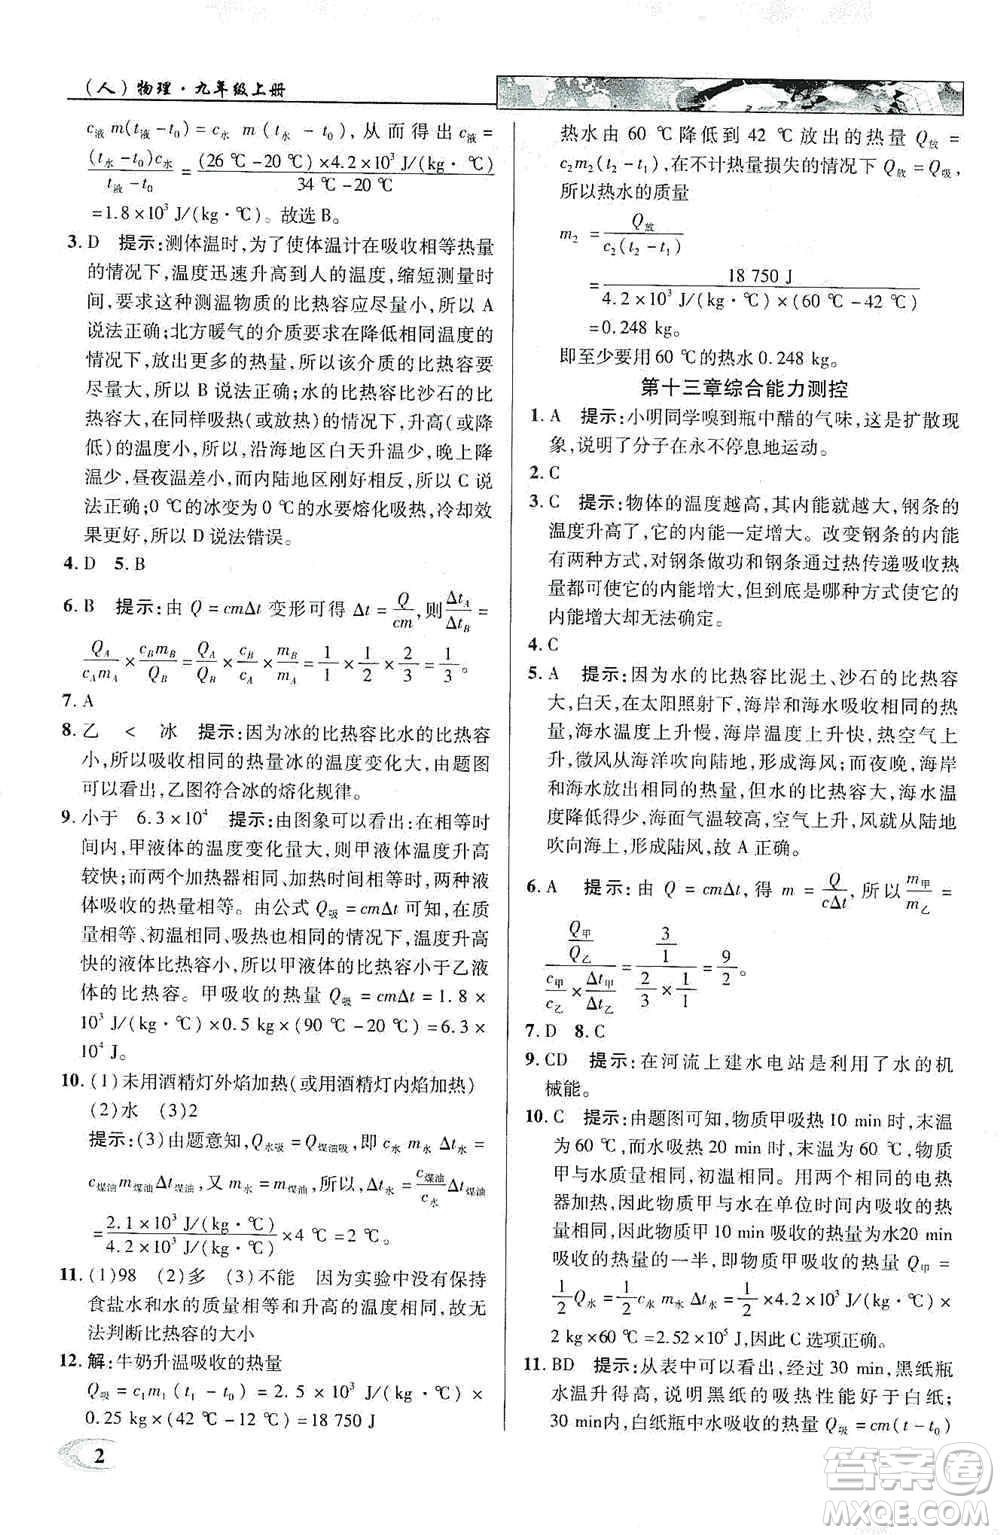 (人)物理·九年级上册
c液 m(t液-t0)=c水 m(t水-t0),从而得出c液=
(t水-t0)c水/(t液-t0)=(26 ℃-20 ℃)×4.2×10³ J/(kg·℃)/(34 ℃-20 ℃)
=1.8×10³ J/(kg·℃)。故选B。
3. D 提示:测体温时,为了使体温计在吸收相等热量
的情况下,温度迅速升高到人的温度,缩短测量时
间,要求这种测温物质的比热容应尽量小,所以 A
说法正确;北方暖气的介质要求在降低相同温度的
情况下,放出更多的热量,所以该介质的比热容要
尽量大,所以 B 说法正确;水的比热容比沙石的比热容
大,在同样吸热(或放热)的情况下,升高(或降
低)的温度小,所以,沿海地区白天升温少,晚上降温
少,昼夜温差小,而内陆地区则大,所以 C 说
法正确;0 ℃的冰变为0 ℃的水要熔化吸热,冷却效
果更好,所以 D 说法错误。
4. D 5. B
6. B 提示:由 Q=cmΔt 变形可得 Δt=Q/cm,则ΔtA/ΔtB=
QA/(cAmA)×(cBmB)/QB=QA/QB×cB/cA×mB/mA=1/1×1/2×2/3=1/3
7. A
8. 乙 < 冰 提示:因为冰的比热容比水的比热容
小,所以吸收相同的热量冰的温度变化大,由题图
可以看出,乙图符合冰的熔化规律。
9. 小于 6.3×10⁴ 提示:由图象可以看出:在相等时
间内,甲液体的温度变化量大,则甲液体温度升高
较快;而两个加热器相同、加热时间相同,两种液
体吸收的热量相等。由公式 Q吸=cmΔt 可知,在质
量相等、初温相同、吸热相同的情况下,温度升高
快的液体比热容小,所以甲液体的比热容小于乙液
体的比热容。甲吸收的热量 Q吸=cmΔt=1.8×
10³ J/(kg·℃)×0.5 kg×(90 ℃-20 ℃)=6.3×
10⁴ J。
10. (1)未用酒精灯外焰加热(或用酒精灯内焰加热)
(2)水 (3)2
提示:(3)由题意知,Q水吸=Q煤油吸,即 c水 m水 Δt水=
c煤油 m煤油Δt煤油,又 m水=m煤油,所以,Δt水=c煤油/c水 Δt煤油
=2.1×10³ J/(kg·℃)/4.2×10³ J/(kg·℃)×4 ℃=2 ℃。
11. (1)98 (2)多 (3)不能 因为实验中没有保持
食盐水和水的质量相等和升高的温度相同,故无
法判断比热容的大小
12. 解:牛奶升温吸收的热量
Q吸=c1m1(t1-t0)=2.5×10³ J/(kg·℃)×
0.25 kg×(42 ℃-12 ℃)=18 750 J
2
热水由 60 ℃降低到 42 ℃放出的热量 Q放=
c2m2(t2-t1),在不计热量损失的情况下 Q放=Q吸,
所以热水的质量
m2=Q放/c2(t2-t1)
=18 750 J/4.2×10³ J/(kg·℃)×(60 ℃-42 ℃)
=0.248 kg。
即至少要用 60 ℃的热水 0.248 kg。
第十三章综合能力测控
1. A 提示:小明同学嗅到瓶中醋的气味,这是扩散现
象,说明了分子在永不停息地运动。
2. C
3. C 提示:物体的温度越高,其内能就越大,钢条的
温度升高了,它的内能一定增大。改变钢条的内能
有两种方式,对钢条做功和钢条通过热传递吸收热
量都可以使它的内能增大,但是哪种方式使它的
内能增大却无法确定。
4. C
5. A 提示:因为水的比热容比泥土、沙石的比热容
大,白天,在太阳照射下,海岸和海水吸收相同的热
量,海水温度上升慢,海岸温度上升快,热空气上
升,微风从海洋吹向陆地;而夜晚,降温时,海岸
和海水放出相同的热量,但水的温度降低少,海岸
温度降低多,海面气温较高,空气上升,风就从陆地
吹向海上,形成陆风,故 A 正确。
6. A 提示:由 Q=cmΔt,得 m=Q/cΔt,所以m甲/m乙=
(Q甲/Q乙)/(c甲/c乙×Δt甲/Δt乙)=(3/1)/(2/3×1/1)=9/2。
7. D 8. C
9. CD 提示:在河流上建水电站是利用了水的机
械能。
10. C 提示:由题图可知,物质甲吸热 10 min 时,末温
为 60 ℃,而水吸热 20 min 时,末温为 60 ℃,物质
甲与水质量相同,初温相同。用两个相同的电热
器加热,所以物质甲与水在单位时间内吸收的热
量相同,因此物质甲 10 min 吸收的热量为水20 min
吸收的热量的一半,即物质甲吸收的热量 Q甲=
1/2Q水=1/2c水 m水 Δt水=1/2×4.2×10³ J/(kg·℃)×
2 kg×60 ℃=2.52×10⁵ J,因此 C 选项正确。
11. BD 提示:从表中可以看出,经过 30 min,黑纸瓶
水温升得高,说明黑纸的吸热性能好于白纸;
30 min,白纸瓶中水吸收的热量 Q吸=cm(t-t0)
答案圈
MXQE.COM